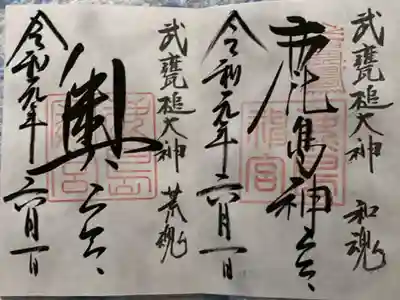 武甕槌大神 和魂
鹿島神宮
令和元年六月一日
武甕槌大神 荒魂
奥宮
令和元年六月一日